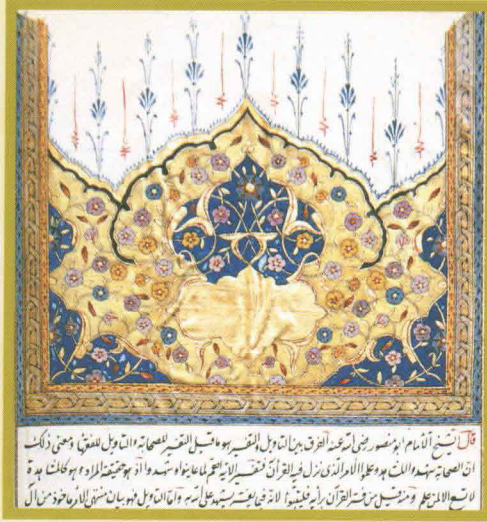 قال الشيخ الامام ابو منصور رضي الله عنه الفرق بين التاويل والتفسير هو ما قيل التفسير للصحابة والتاويل للفقها ومعنى ذلك
ان الصحابة شهدوا المشاهد وعلموا الامر الذي نزل فيه القرآن فتفسير الاية اهم لما عاينوا وشهدوا اذ هو حقيقة المراد وهو كالمشاهدة
لا تسمح الا لمن علم ومنه قيل من فسر القرآن برأيه فليتبوأ لانه فيما يفسر يشهد على الله به واما التاويل فهو بيان منتهى الامر مأخوذ من آل